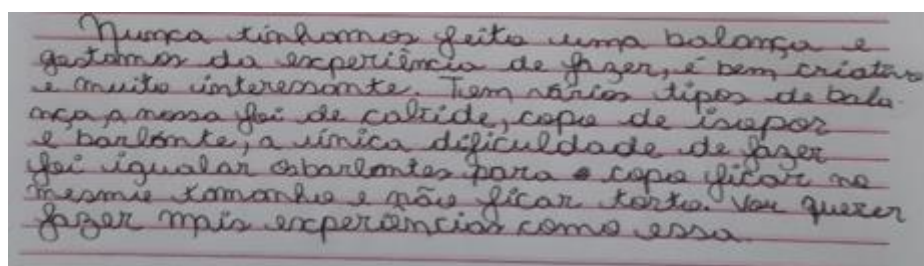 Nunca tinhamos feito uma balança e
gostamos da experiência de fazer, é bem criativo
e muito interessante. Tem vários tipos de bala
nça a nossa foi de cabide, copo de isopor
e barbante, a única dificuldade de fazer
foi igualar os barbantes para o copo ficar no
mesmo tamanho e não ficar torto. Vou querer
fazer mais experiências como essa.